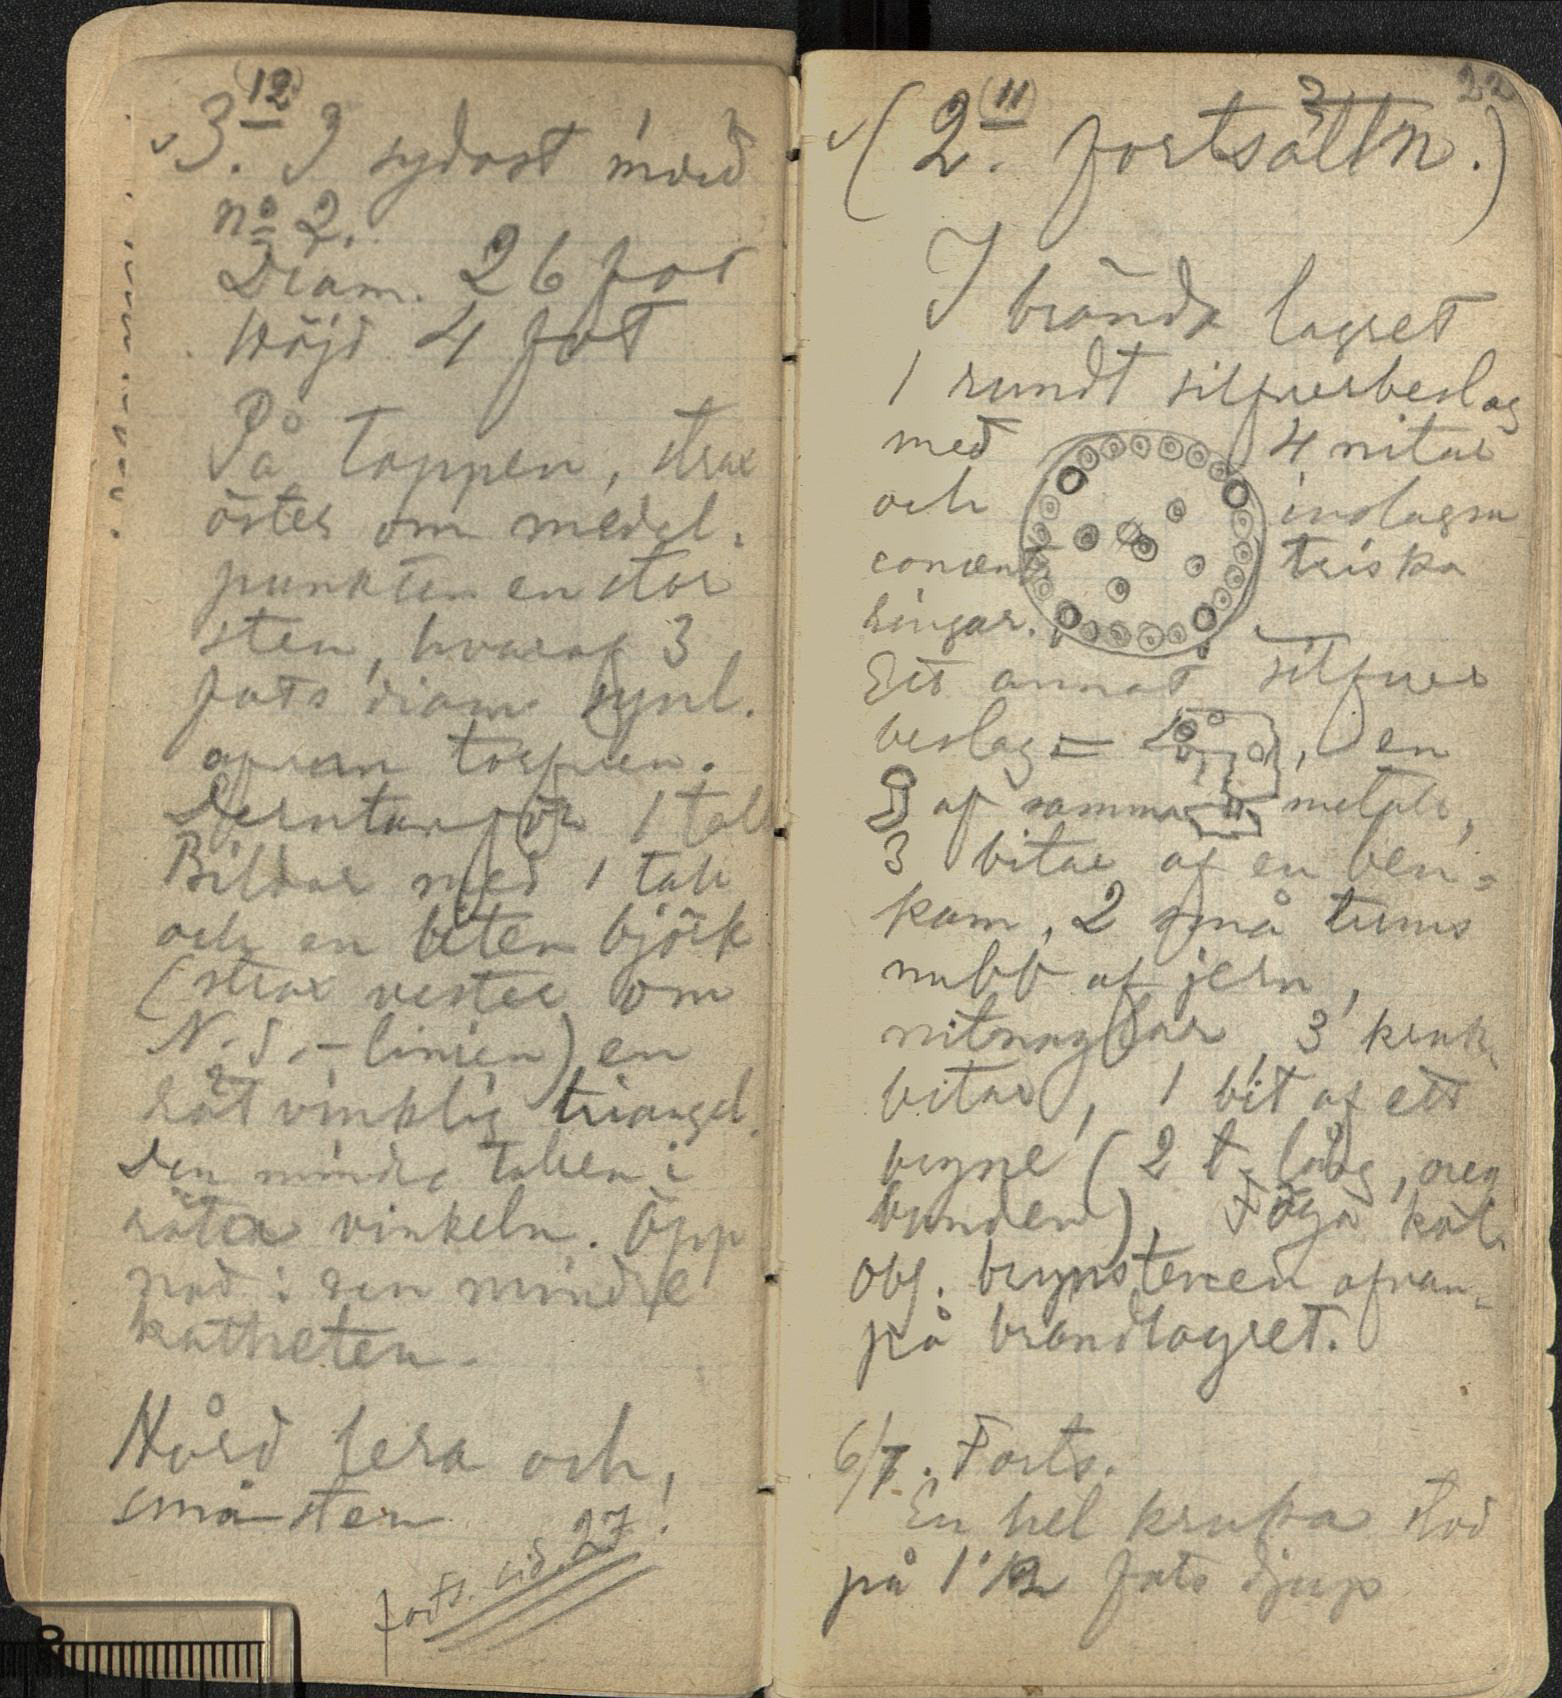 (12)
3. I sydost med
no 2.
Diam. 26 fot
Höjd 4 fot
På toppen, strax
öster om medel-
punkten en stor
sten, hvaraf 3
fots diam synl.
ofvan torfven.
Deruntanför 1 tall
Bildar med 1 tall
och en liten björk
(strax vester om
N.S.-linien) en
rätvinklig triangel.
Den mindre tallen i
räta vinkeln. Öpp
nad i den mindre
katheten.
Hård lera och
småsten!
forts. sid. 27
22
(11)
(2. fortsättn.)
I brända lagret
1 rundt silfverbeslag
med 4 nitar
och inslagna
concentriska
ringar.
Ett annat silfver
beslag = , en
af samma metall,
3 bitar af en ben-
kam, 2 små tums
nubb af jern,
nitnaglar, 3 kruk-
bitar, 1 bit af ett
bryne (2 t. lång,
bunden). Föga kol.
Obs. brynstenen ofvan-
på brandlagret.
6/7. Forts.
En hel kruka stod
på 1 1/2 fots djup